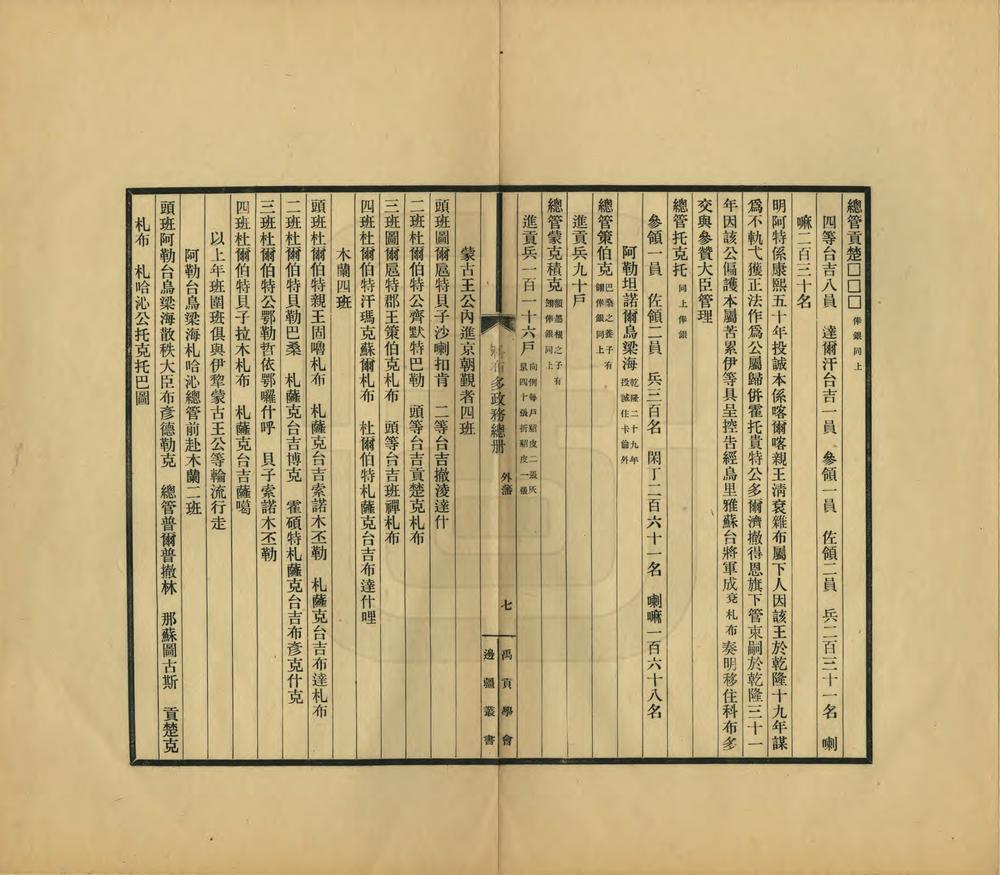 總管貢楚□□□俸銀同上
四等台吉八員　達爾汗台吉一員　參領一員　佐領二員　兵二百三十一名　喇
嘛二百三十名
明阿特係康熙五十年投誠本係喀爾喀親王淸袞雜布屬下人因該王於乾隆十九年謀
爲不軌弋獲正法作爲公屬歸併霍托貴特公多爾濟撤得恩旗下管束嗣於乾隆三十一
年因該公偏護本屬苦累伊等具呈控吿經烏里雅蘇台將軍成袞札布奏明移住科布多
交與參贊大臣管理
總管托克托同上俸銀
參領一員　佐領二員　兵三百名　閑丁二百六十一名　喇嘛一百六十八名
阿勒坦諾爾烏梁海乾隆二十九年投誠住卡倫外
總管策伯克巴桑之養子有翎俸銀同上
進貢兵九十戶
總管蒙克積克額墨根之子有翎俸銀同上
進貢兵一百一十六戶向例每戶貂皮二張灰鼠四十張折貂皮一張
科布多政務總册　外藩　七　禹貢學會
邊疆叢書
蒙古王公內進京朝覲者四班
頭班圖爾扈特貝子沙喇扣肯　二等台吉撤淩達什
二班杜爾伯特公齊默特巴勒　頭等台吉貢楚克札布
三班圖爾扈特郡王策伯克札布　頭等台吉班禪札布
四班杜爾伯特汗瑪克蘇爾札布　杜爾伯特札薩克台吉布達什哩
木蘭四班
頭班杜爾伯特親王固嚕札布　札薩克台吉索諾木丕勒　札薩克台吉布達札布
二班杜爾伯特貝勒巴桑　札薩克台吉博克　霍碩特札薩克台吉布彥克什克
三班杜爾伯特公鄂勒哲依鄂囉什呼　貝子索諾木丕勒
四班杜爾伯特貝子拉木札布　札薩克台吉薩噶
以上年班圍班俱與伊犂蒙古王公等輪流行走
阿勒台烏梁海札哈沁總管前赴木蘭二班
頭班阿勒台烏梁海散秩大臣布彥德勒克　總管普爾普撤林　那蘇圖古斯　貢楚克
札布　札哈沁公托克托巴圖